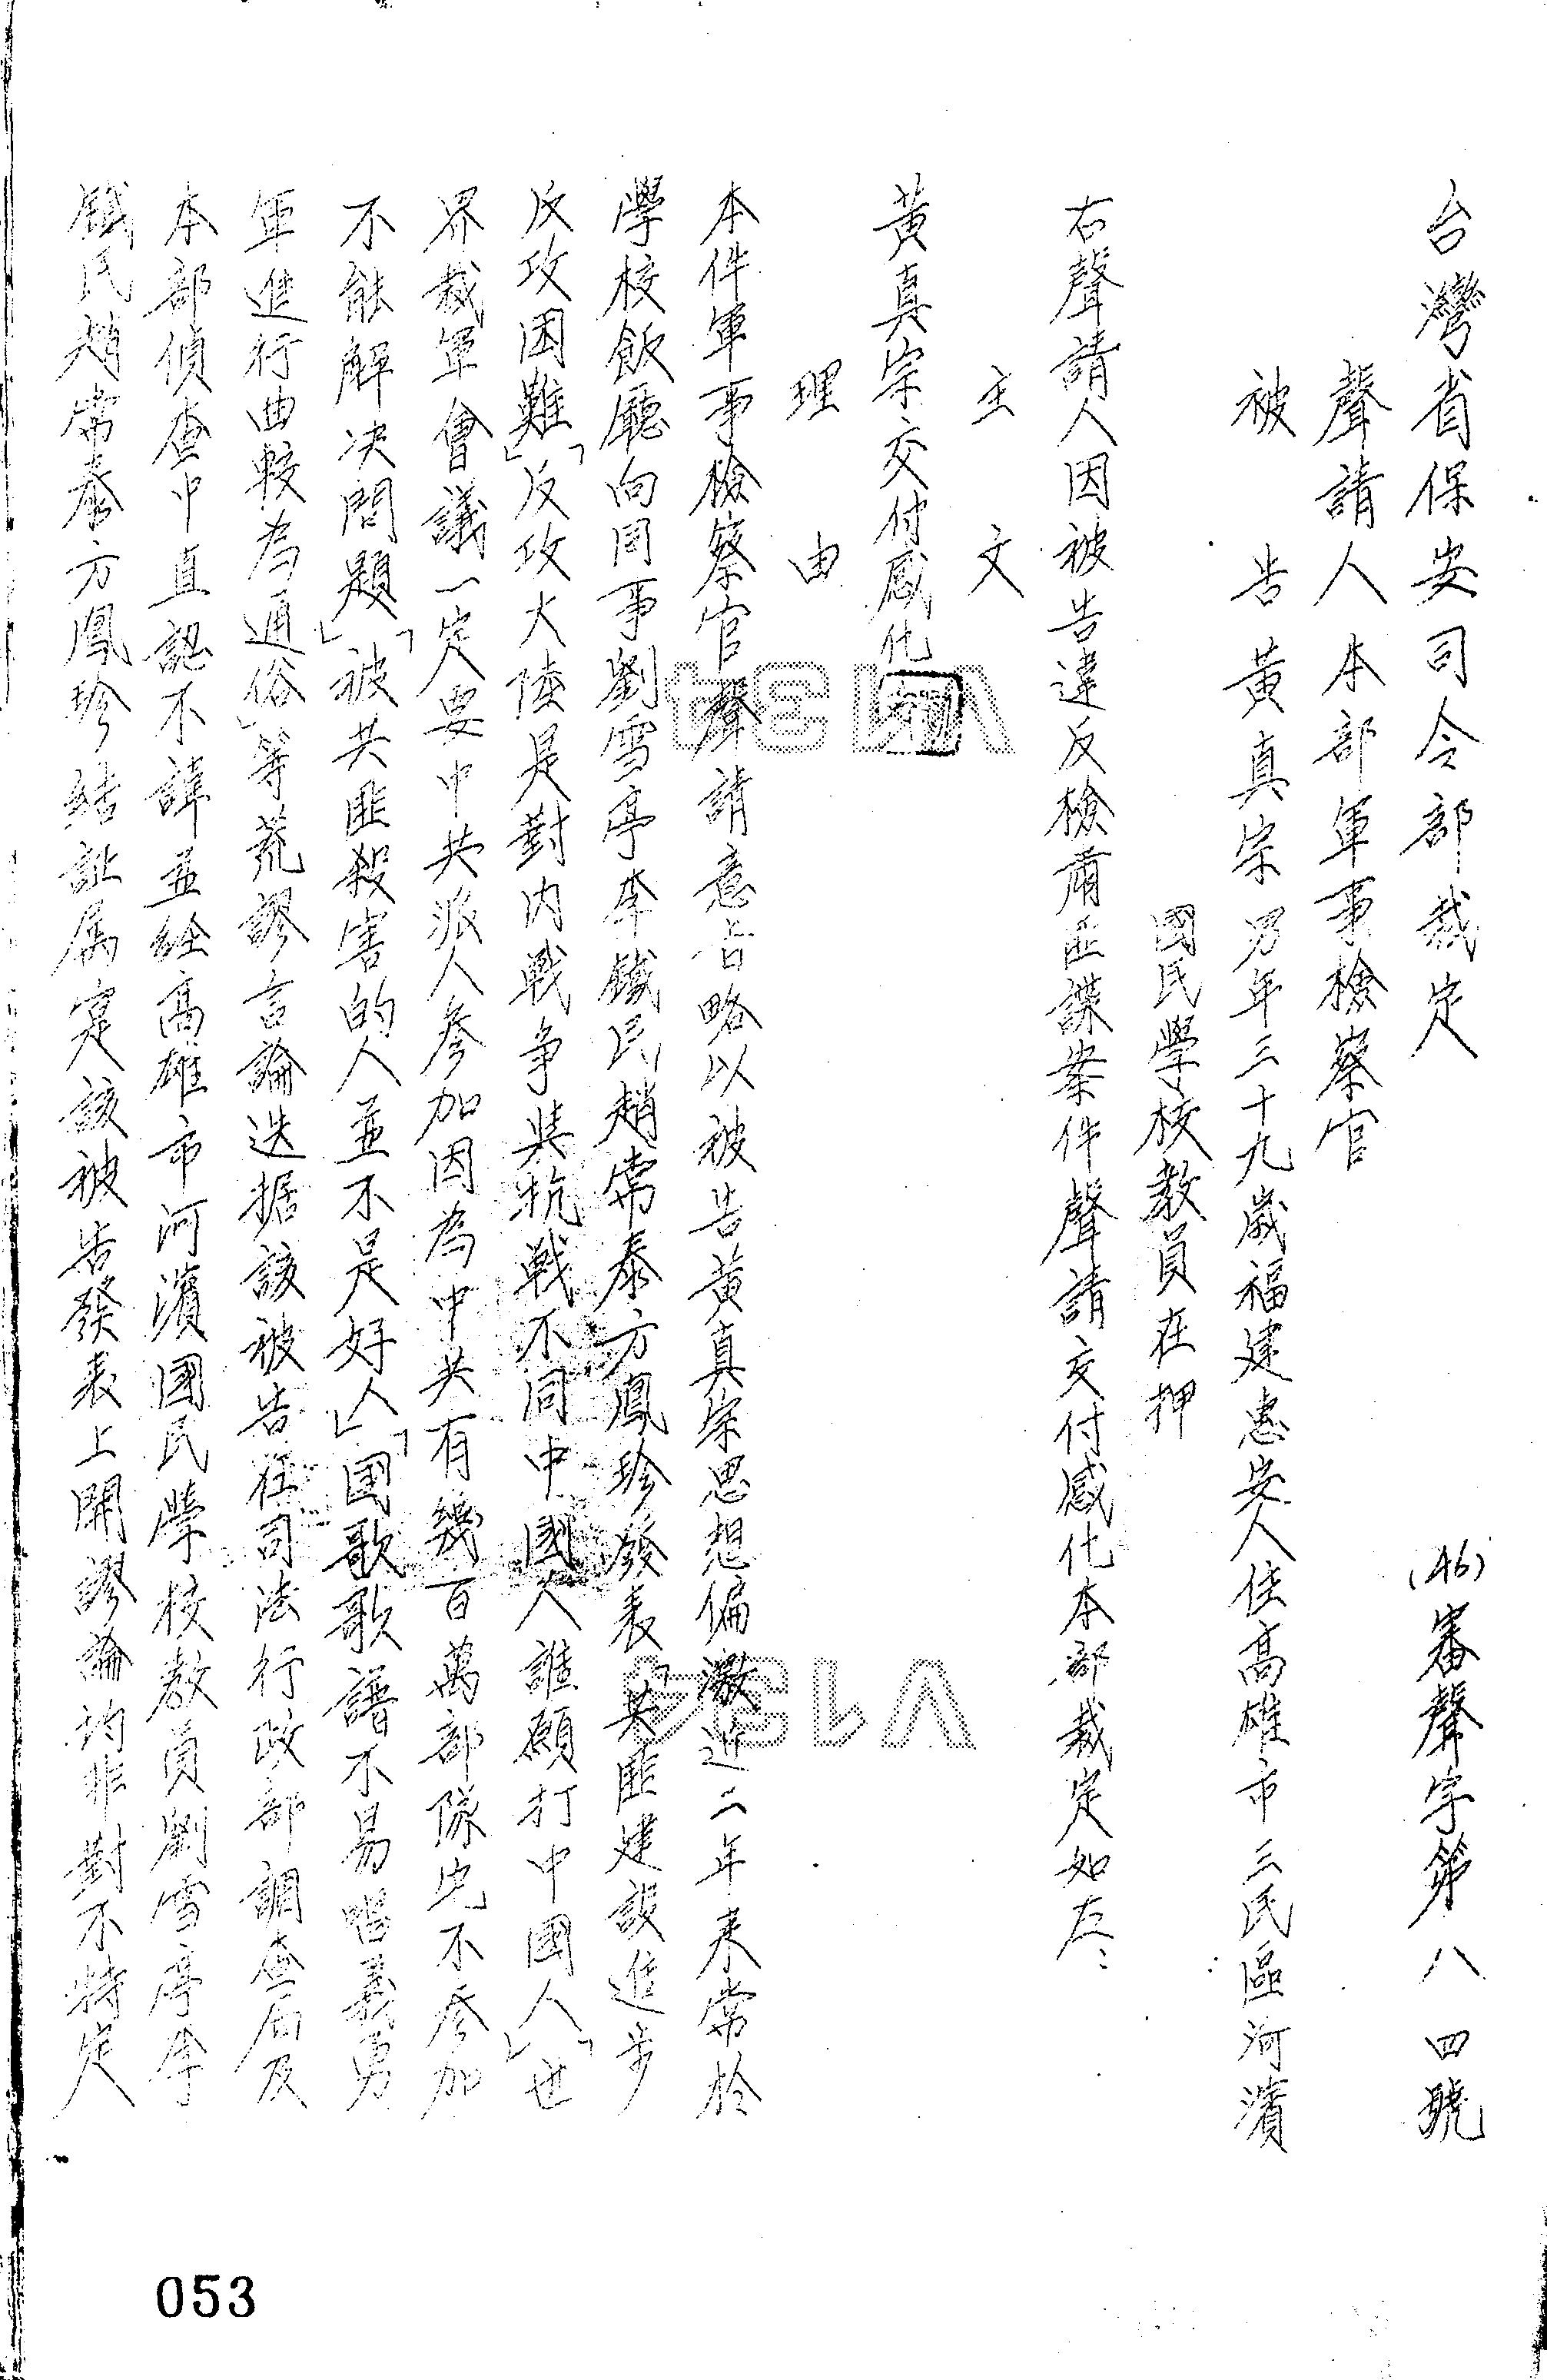 台灣省保安司令部裁定 (46)審聲字第八四號
聲請人 本部軍事檢察官
被告 黃真宗 男年三十九歲福建惠安人住高雄市三民區河濱
國民學校教員在押
右聲請人因被告違反檢肅匪諜案件聲請交付感化本部裁定如左、
主文
黃真宗交付感化
理由
本件軍事檢察官聲請意旨略以被告黃真宗思想偏激近二年來常於
學校飯廳向同事劉雪亭李鐵民趙常泰方鳳珍發表「共匪建設進步
反攻困難」「反攻大陸是對內戰爭與抗戰不同中國人誰願打中國人」「世
界裁軍會議一定要中共派人參加因為中共有幾百萬部隊它不參加
不能解決問題」「被共匪殺害的人並不是好人」「國歌歌譜不易唱義勇
軍進行曲較為通俗」等荒謬言論迭据該被告在司法行政部調查局及
本部偵查中直認不諱並經高雄市河濱國民學校教員劉雪亭李
鐵民趙常泰方鳳珍結証属寔該被告發表上開謬論均非對不特定
053
V134
V134